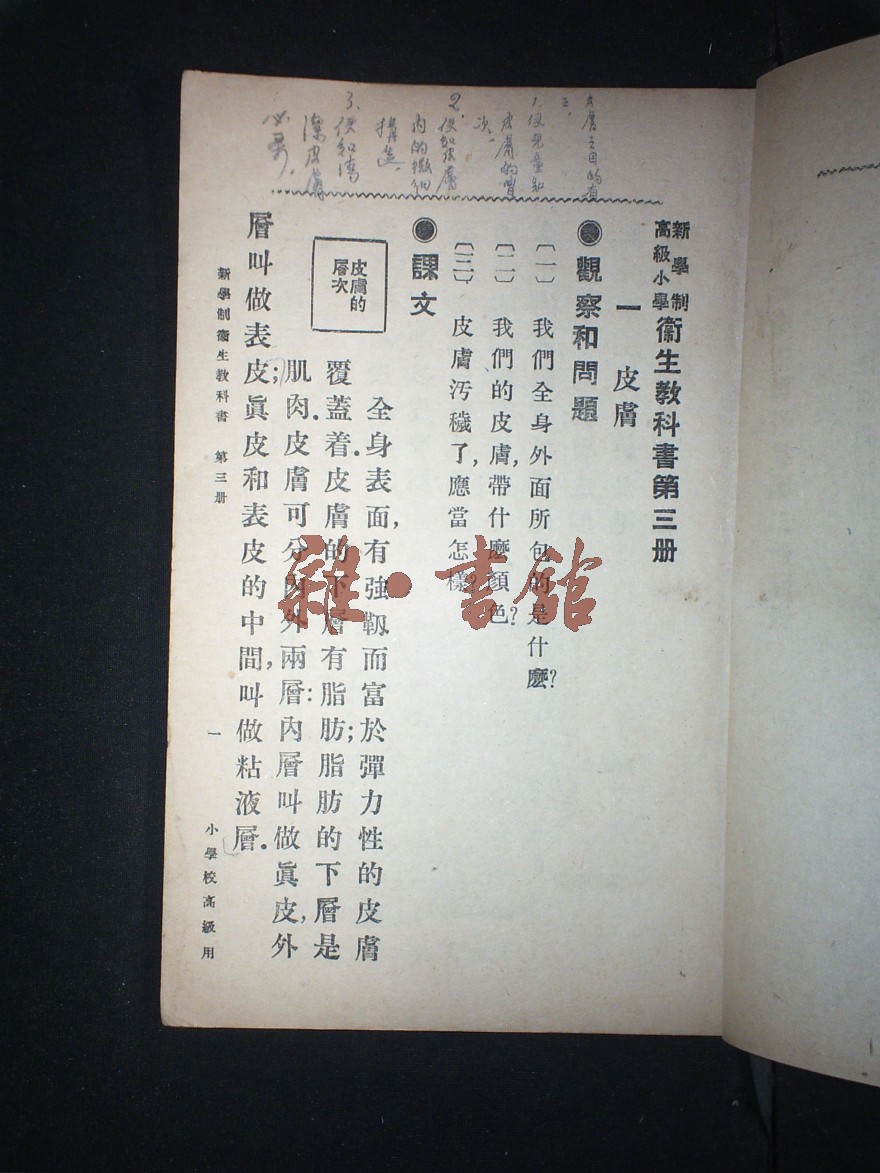 新學制
高級小學
衞生教科書第三册
一 皮膚
觀察和問題
〔一〕 我們全身外面所包的是什麽?
〔二〕 我們的皮膚,帶什麽顏色?
〔三〕 皮膚汚穢了,應當怎樣?
課文
皮膚的
層次
全身表面,有強韌而富於彈力性的皮膚
覆蓋着.皮膚的下層有脂肪;脂肪的下層是
肌肉.皮膚可分內外兩層:內層叫做眞皮,外
層叫做表皮;眞皮和表皮的中間,叫做粘液層.
新學制衞生教科書 第三册
一
小學校高級用
1.使兒童知
皮膚的層
次.
2.使知皮膚
內的微細
構造.
3.使知清
潔皮膚
必要.
雜·書館